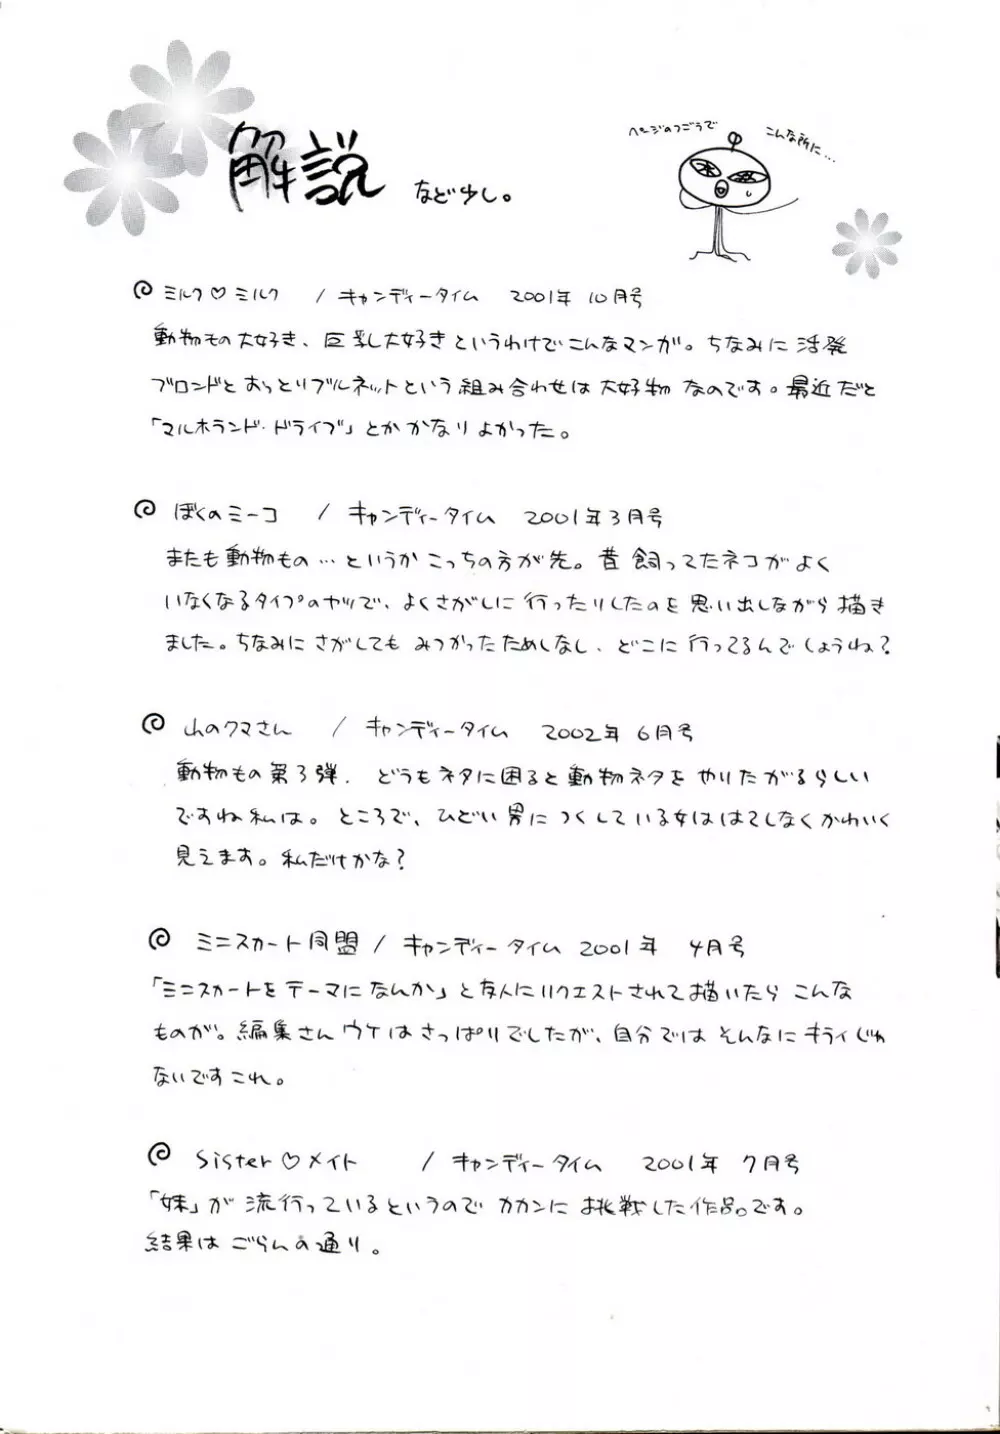 解説 など少し。
ページのつごうで
こんな所に…
ミルク♡ミルク / キャンディータイム 2001年10月号
動物もの大好き、巨乳大好きというわけでこんなマンガ。ちなみに活発
ブロンドとおっとりブルネットという組み合わせは大好物なのです。最近だと
「マルホランド・ドライブ」とかかなりよかった。
ぼくのミーコ / キャンディータイム 2001年3月号
またも動物もの…というかこっちの方が先。昔飼ってたネコがよく
いなくなるタイプのヤツで、よくさがしに行ったりしたのを思い出しながら描き
ました。ちなみにさがしてもみつかったためしなし、どこに行ってるんでしょうね?
山のクマさん / キャンディータイム 2002年6月号
動物もの第3弾、どうもネタに困ると動物ネタをやりたがるらしい
ですね私は。ところで、ひどい男につくしている女ははてしなくかわいく
見えます。私だけかな?
ミニスカート同盟 / キャンディータイム 2001年 4月号
「ミニスカートをテーマになんか」と友人にリクエストされて描いたらこんな
ものが。編集さんウケはさっぱりでしたが、自分ではそんなにキライじゃ
ないですこれ。
Sister♡メイト / キャンディータイム 2001年 7月号
「妹」が流行っているというのでカカンに挑戦した作品です。
結果はごらんの通り。